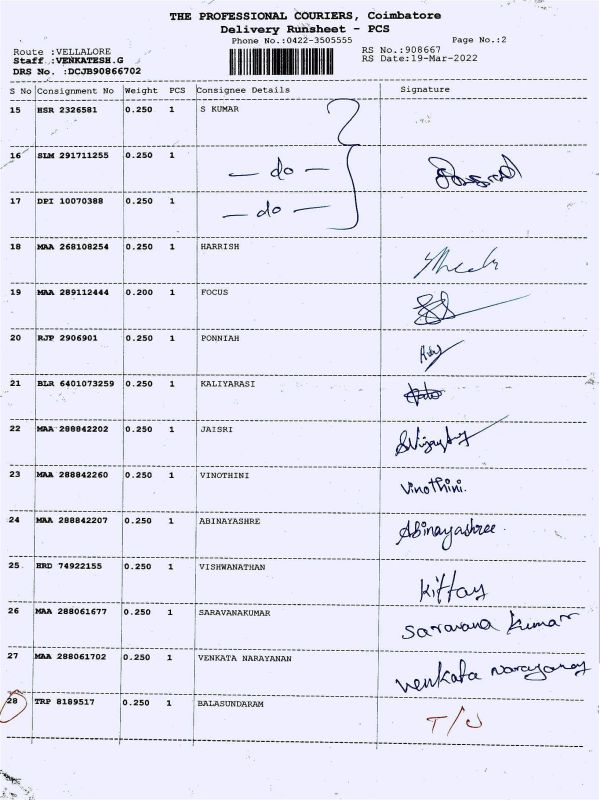 THE PROFESSIONAL COURIERS, Coimbatore
Delivery Runsheet - PCS
Phone No.:0422-3505555 Page No.:2
Route :VELLALORE RS No.:908667
Staff :VENKATESH.G RS Date:19-Mar-2022
DRS No. :DCJB90866702
S No Consignment No Weight PCS Consignee Details Signature
15 HSR 2326581 0.250 1 S KUMAR
16 SLM 291711255 0.250 1 — do —
17 DPI 10070388 0.250 1 — do —
18 MAA 268108254 0.250 1 HARRISH
19 MAA 289112444 0.200 1 FOCUS
20 RJP 2906901 0.250 1 PONNIAH
21 BLR 6401073259 0.250 1 KALIYARASI
22 MAA 288842202 0.250 1 JAISRI
23 MAA 288842260 0.250 1 VINOTHINI Vinothini.
24 MAA 288842207 0.250 1 ABINAYASHRE Abinayashree.
25 HRD 74922155 0.250 1 VISHWANATHAN
26 MAA 288061677 0.250 1 SARAVANAKUMAR Saravana kumar
27 MAA 288061702 0.250 1 VENKATA NARAYANAN venkata narayanan
28 TRP 8189517 0.250 1 BALASUNDARAM